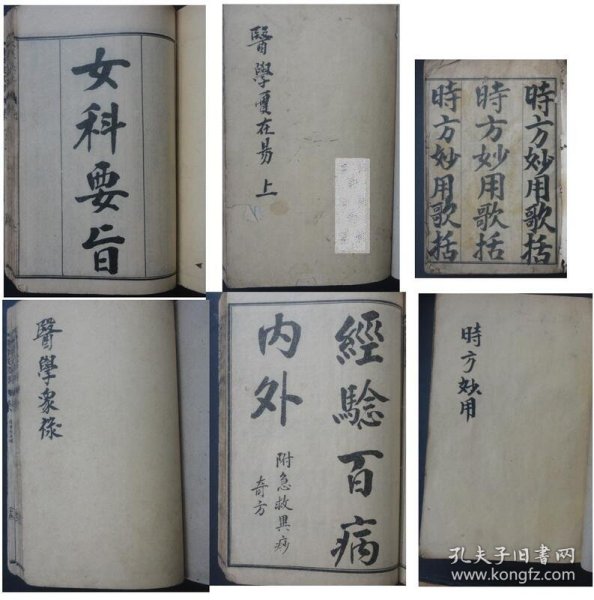 女科要旨
醫學實在易 上
時方妙用歌括
時方妙用歌括
時方妙用歌括
醫學眾錄
經驗百病
內外
附急救異痧
奇方
時方妙用
孔夫子旧书网
www.kongfz.com